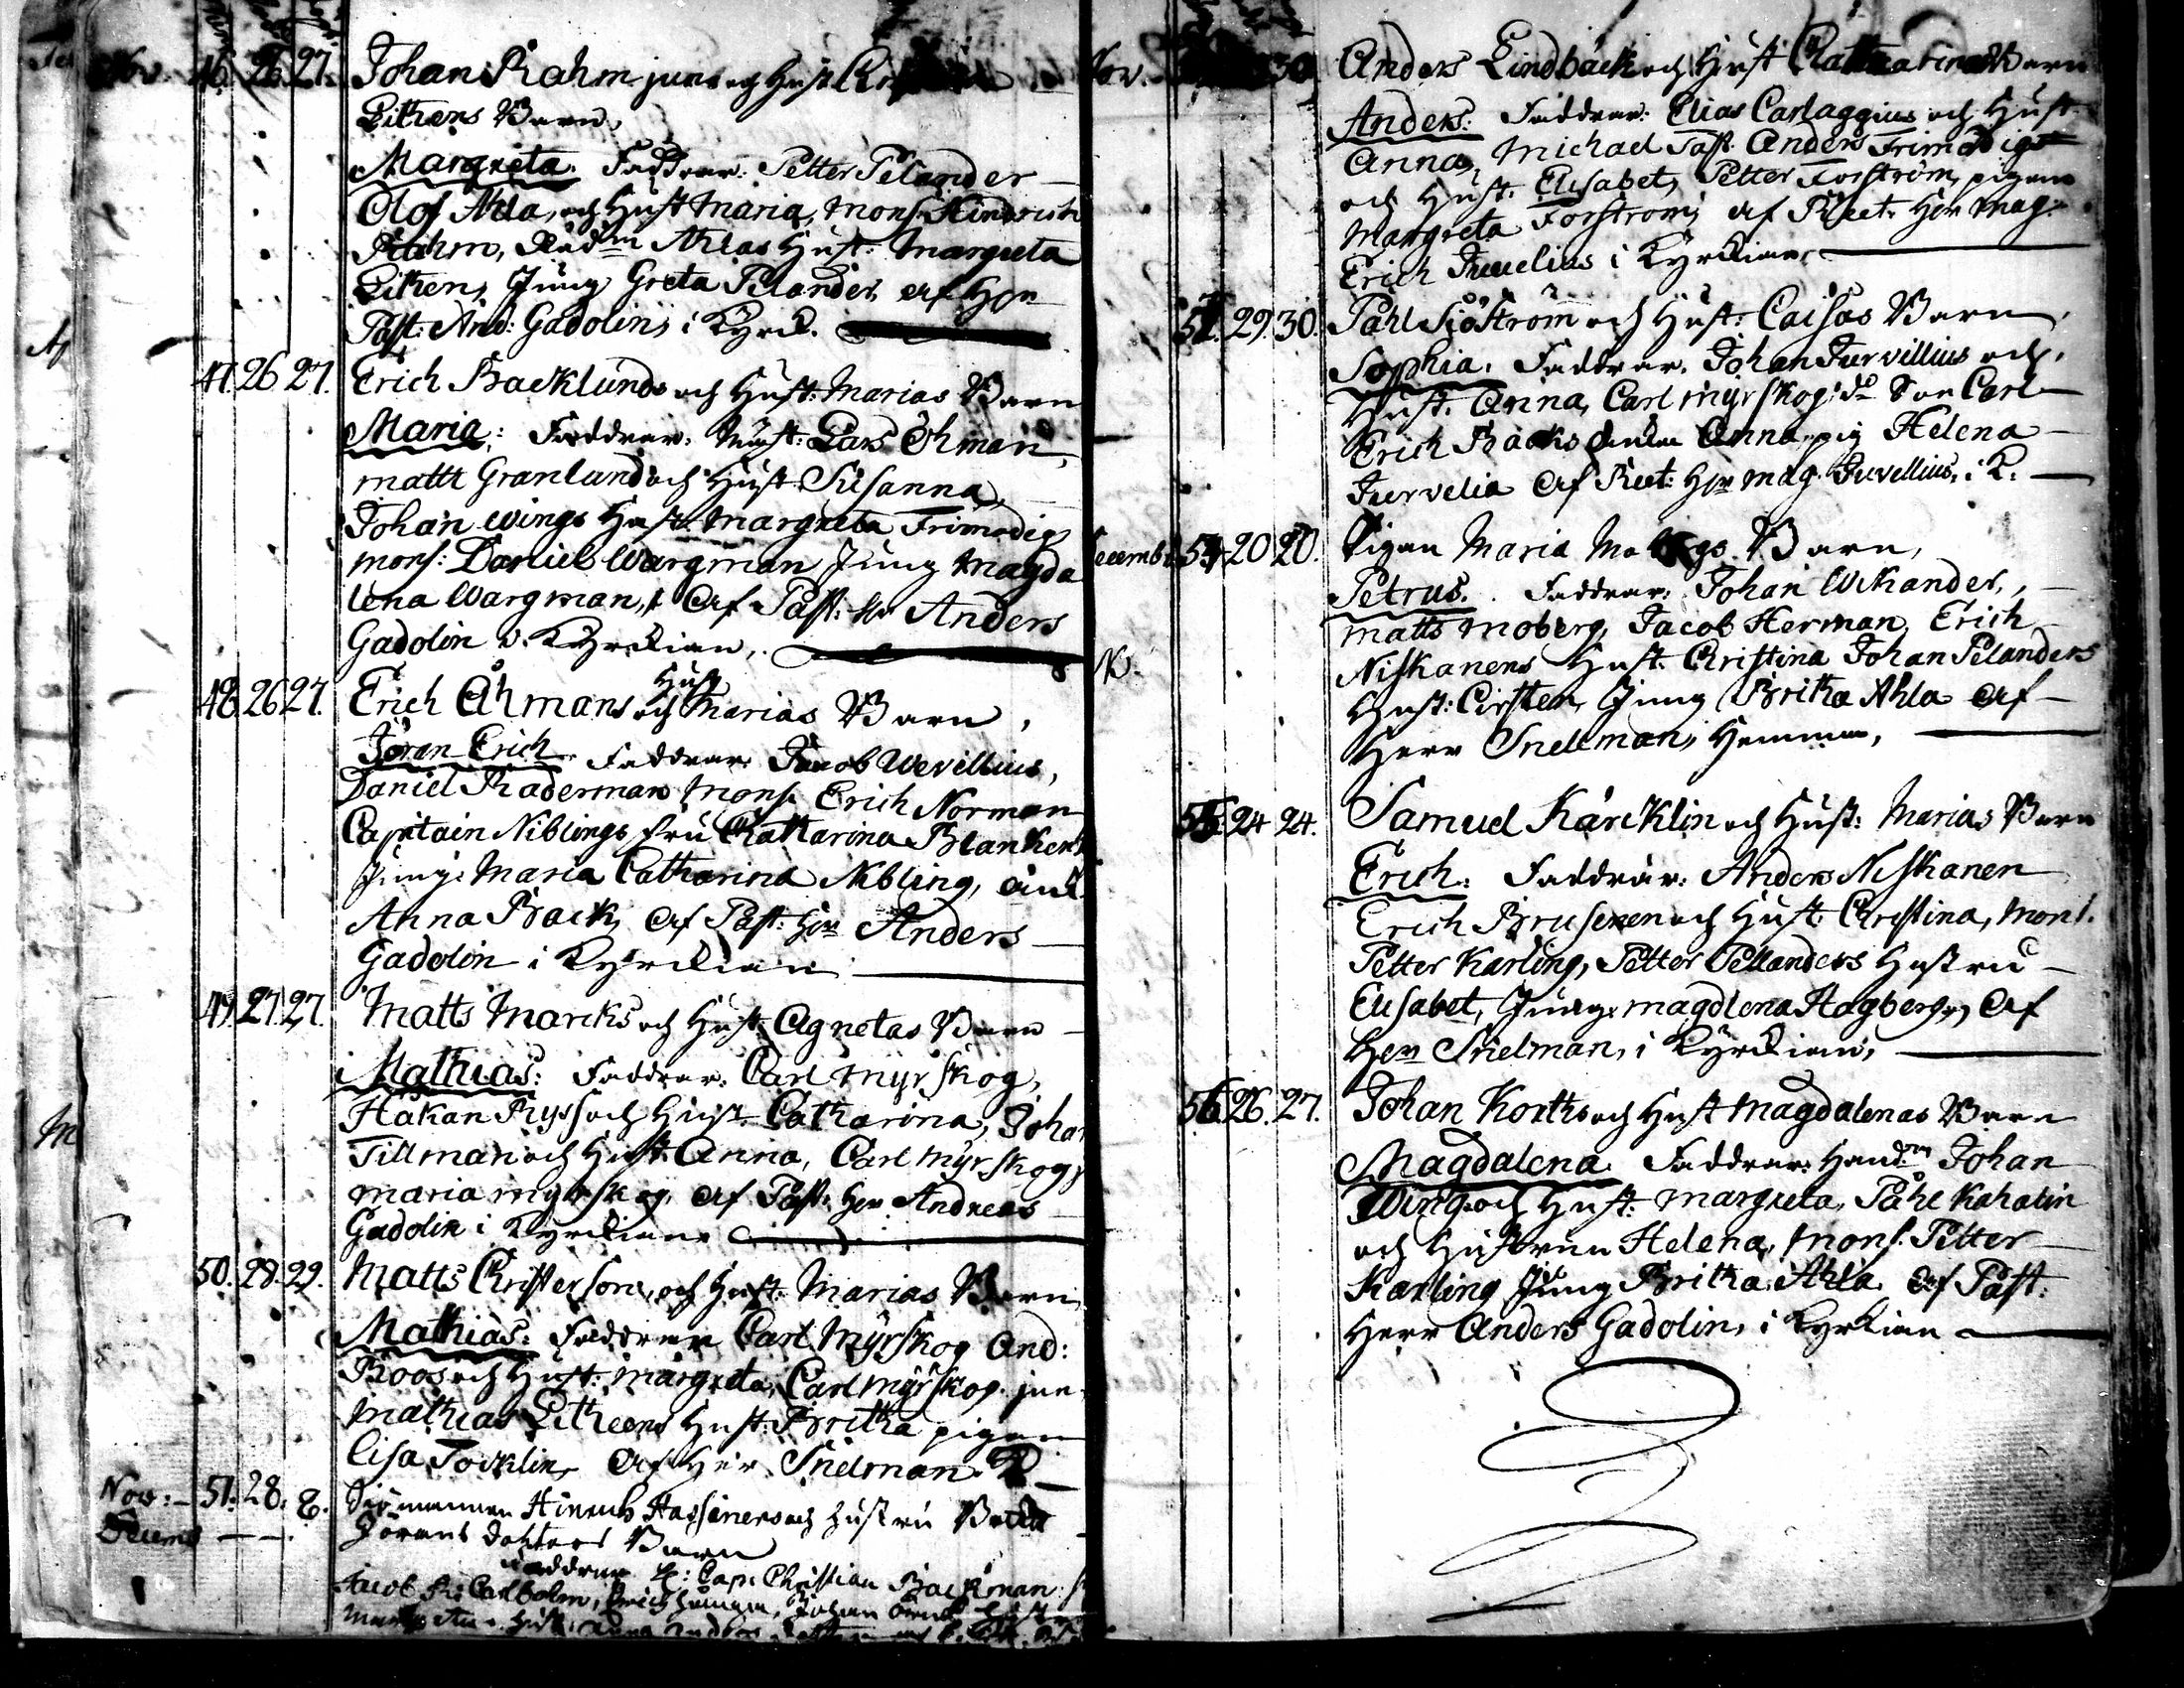 Nov. 46. 26. 27. Johan Rahm jun: och Hust
Lithens Barn,
Margreta. Faddrar: Petter Pelander
Olof Ahla, och Hust Maria, Mons. Hindrich
Rahm, Rådm Ahlas Hust: Margreta
Lithen, Jung Greta Pelander, af Hr
Past: And: Gadolin, i Kyrck.
47. 26 27. Erich Backlunds och Hust: Marias Barn
Maria: Faddrar: Lars Öhman,
Matts Granlund och Hust: Susanna,
Johan Wings Hust: Margreta Frimodig
Mons: Daniel Wargman Jung Magda
lena Wargman, Af Past: Hr Anders
Gadolin i Kyrckian,
48. 26 27. Erich Åhmans och Hust Marias Barn,
Jöran Erich Faddrar: Jacob Wevillius,
Daniel Raderman Mons. Erich Norman
Capitain Niblings fru Chatharina Blanken
Jung: Maria Catharina Nibling,
Anna Back, af Past: Hr Anders
Gadolin i Kyrckian
49. 27. 27. Matts Marcks och Hust: Agnetas Barn
Mathias: Faddrar: Carl Myrskog,
Håkan Ryss och Hust: Catharina, Joha
Tillman och Hust: Anna, Carl Myrskog
Maria Myrskog, af Past: Hr Andreas
Gadolin i Kyrckian
50. 28. 29. Matts Christersons, och Hust: Marias Barn
Mathias: Faddrar Carl Myrskog And:
Roos och Hust: Margreta, Carl Myrskog jun
Mathias Litheens Hust: Britha pigan
Lisa Tocklin, Af Her. Snelman. K
Nov: 51. 28. 8. Siömannen Hinrich Hassinens och hustru
Decemb Görans dotters Barn
Faddrar H: Cap: Christian Backman:
Jacob Carlbolm, Johan
Nov. 30. Anders Lindbäck och Hust Chatharinas Barn
Anders: Faddrar: Elias Carlaggius och Hust
Anna, Michael Anders Frimodigs
och Hust: Elisabet, Petter Forström, pigan
Margreta Forström, af Rect: Her Mag:
Erich Juvelius i Kyrckian,
29. 30. Påhl Siöström och Hust: Caisas Barn,
Sophia. Faddrar. Johan Jurvillius och,
Hust. Anna, Carl Myrskog: Son Carl
Erich Backs Anna, pig Helena
Juvelia Af Rect: Hr Mag. Juvellius, i K.
Decemb: 54. 20 20. Pigan Maria Barn,
Petrus. Faddrar: Johan Wikander,
Matts Moberg, Jacob Herman, Erich
N3. Niskanens Hust: Christina Johan Pelanders
Hust: Cirsten, Jung Britha Ahla af
Herr Snellman, Hemma,
55. 24 24. Samuel Kårcklin och Hust: Marias Barn
Erich: Faddrar: Anders Niskanen
Erich Brusenen och Hust: Christina, Mons.
Petter Karling, Petter Pellanders Hustru
Elisabet, Jung: Magdlena Hagberg, af
Herr Snelman, i Kyrckian,
56. 26. 27. Johan Korths och Hust Magdalenas Barn
Magdalena Faddrar: Handm Johan
Wing och Hust: Margreta, Påhl Kahalin
och Hustrun Helena, Mons. Petter
Karling Jung Britha Ahla af Past:
Herr Anders Gadolin, i Kyrkian